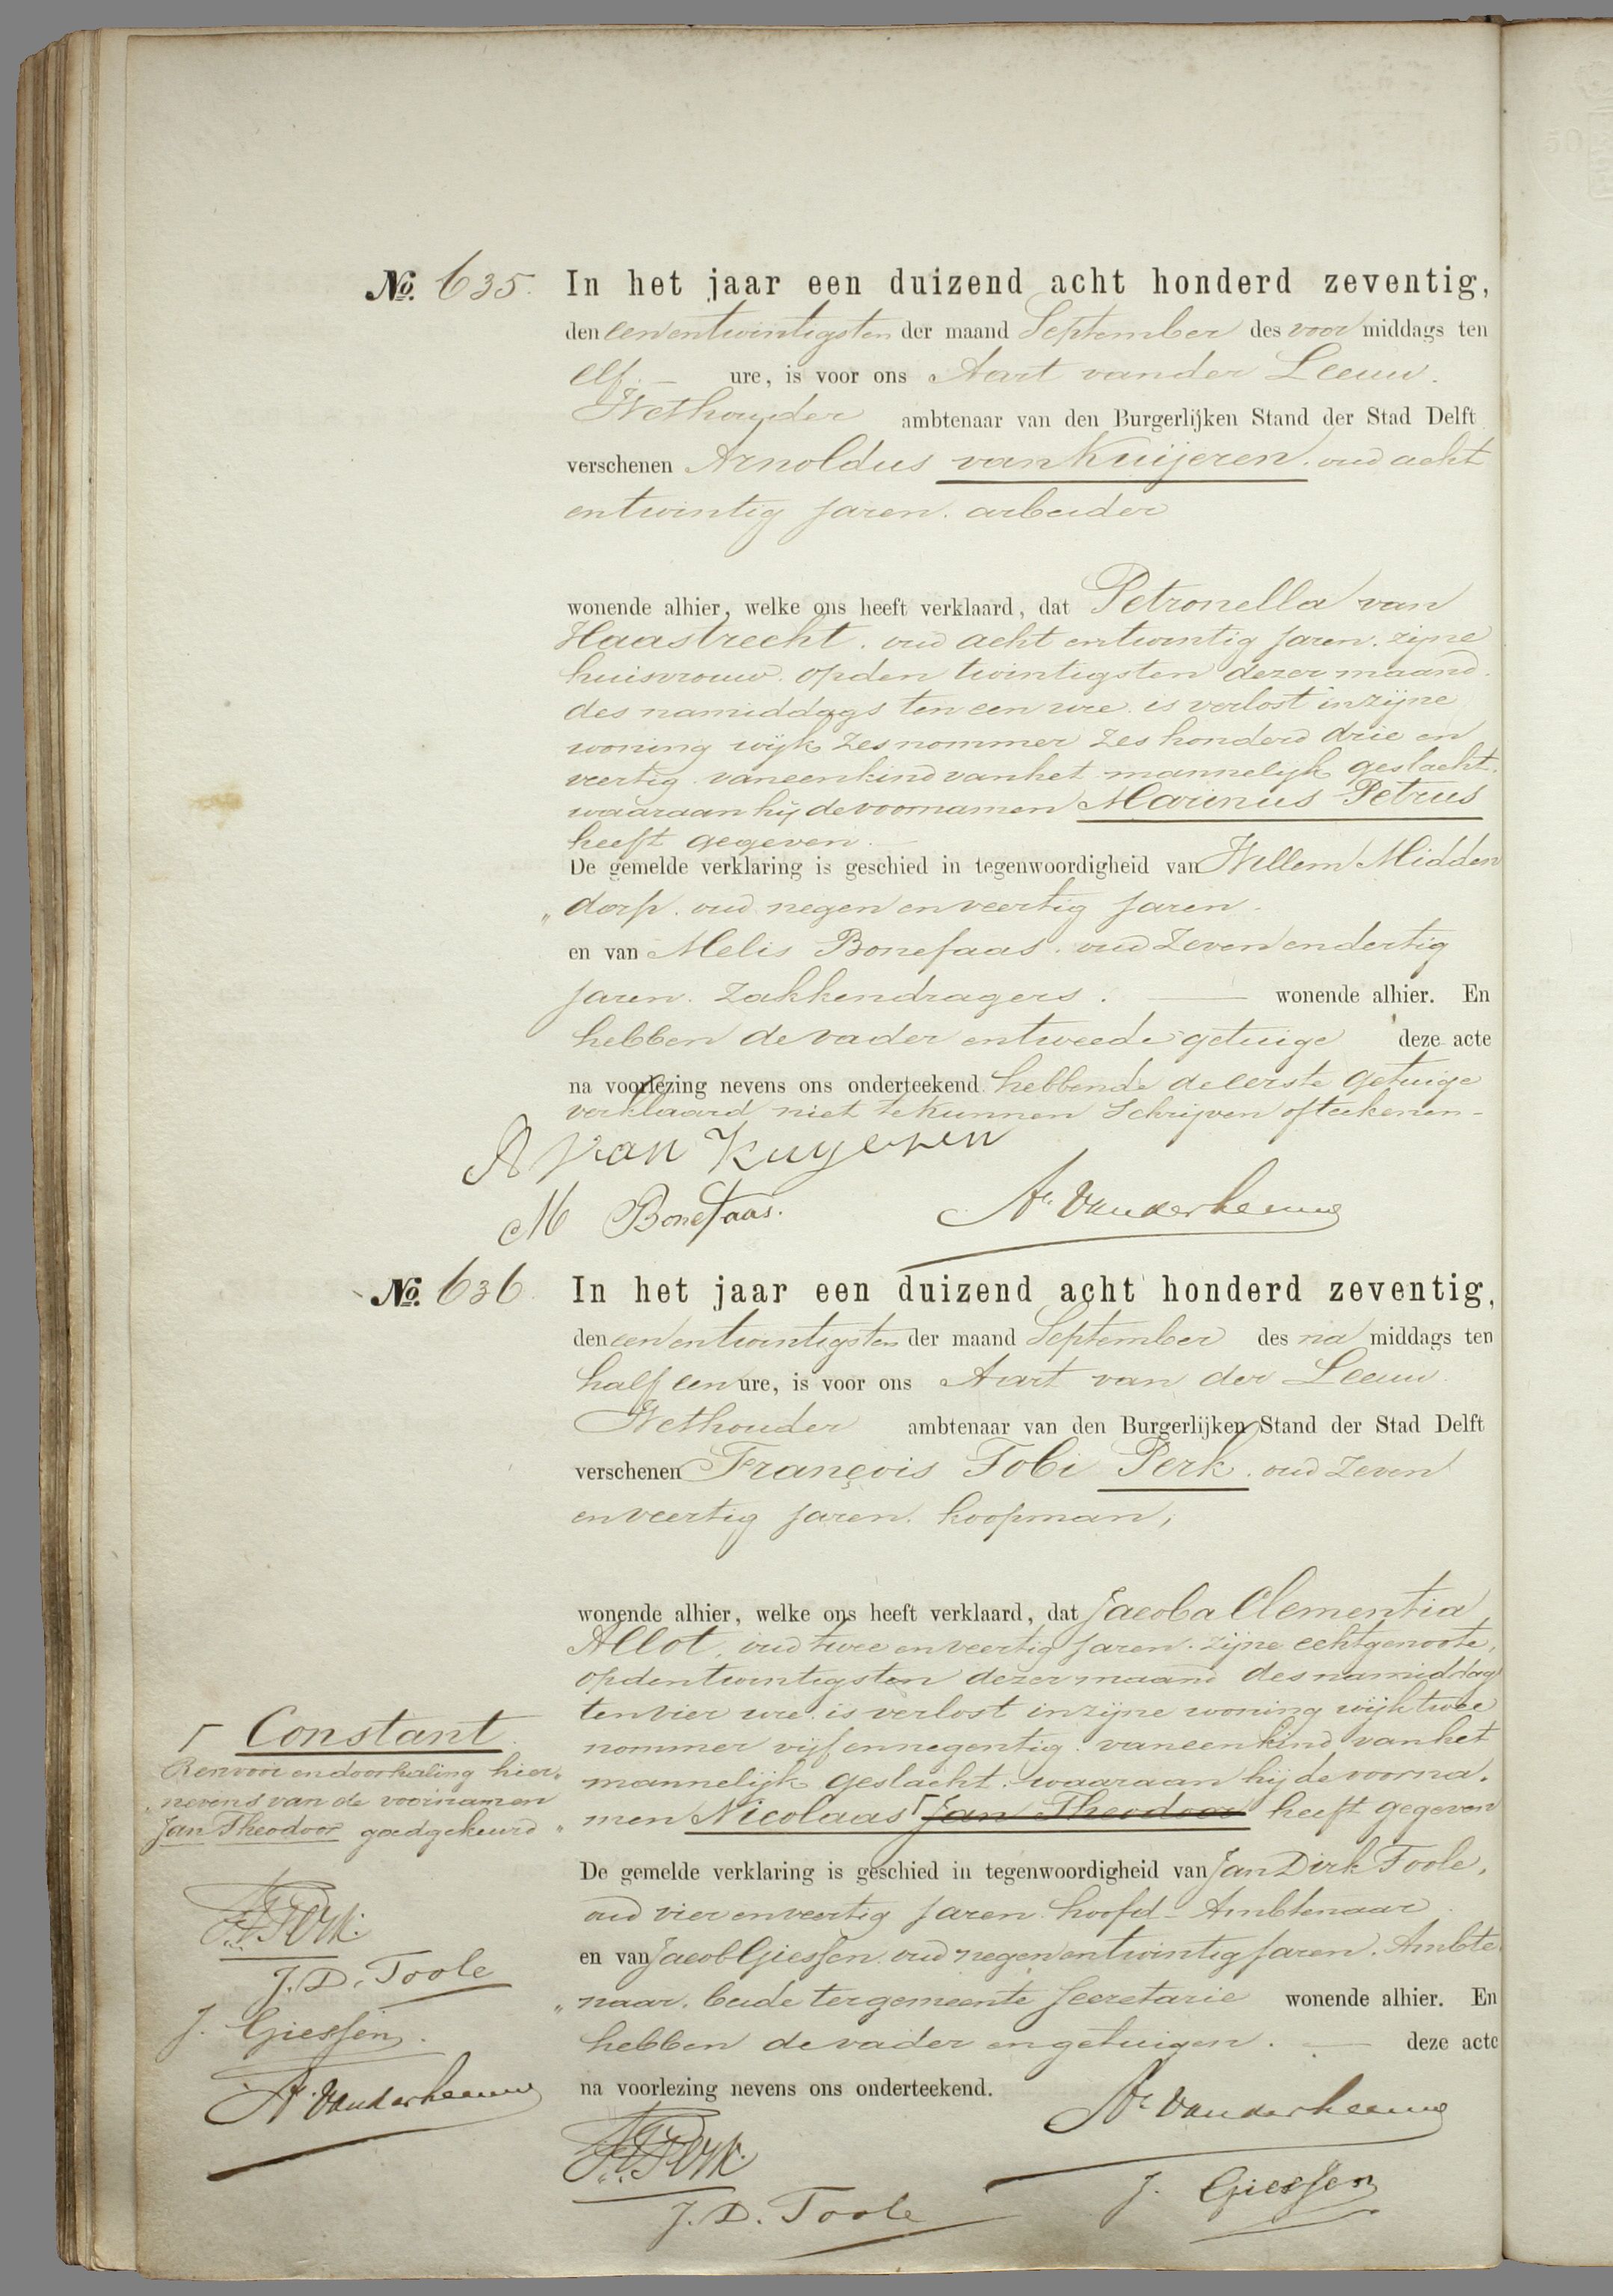 No. 635. In het jaar een duizend acht honderd zeventig,
den eenentwintigsten der maand September des voor middags ten
elf. — ure, is voor ons Aart van der Leeuw.
Wethouder ambtenaar van den Burgerlijken Stand der Stad Delft
verschenen Arnoldus van Kuijeren. oud acht
entwintig jaren. arbeider
wonende alhier, welke ons heeft verklaard, dat Petronella van
Haastrecht. oud acht entwintig jaren. zijne
huisvrouw. op den twintigsten dezer maand.
des namiddags ten een ure. is verlost in zijne
woning wijk zes nommer zes honderd drie en
veertig. van een kind van het mannelijk geslacht.
waaraan hij de voornamen Marinus Petrus
heeft gegeven. —
De gemelde verklaring is geschied in tegenwoordigheid van Willem Midden
„dorp. oud negen en veertig jaren.
en van Melis Bonefaas. oud zeven en dertig
jaren. zakkendragers. — wonende alhier. En
hebben de vader en tweede getuige deze acte
na voorlezing nevens ons onderteekend. hebbende de eerste getuige
verklaard niet te kunnen schrijven of teekenen -
A van Kuyeren
M Bonefaas.
A. van der Leeuw
No. 636. In het jaar een duizend acht honderd zeventig,
den een entwintigsten der maand September des na middags ten
half een ure, is voor ons Aart van der Leeuw.
Wethouder ambtenaar van den Burgerlijken Stand der Stad Delft
verschenen François Tobi Perk. oud zeven
en veertig jaren. koopman,
wonende alhier, welke ons heeft verklaard, dat Jacoba Clementia
Allot, oud twee en veertig jaren. zijne echtgenoote,
op den twintigsten dezer maand des namiddags
ten vier ure. is verlost in zijne woning wijk twee
nommer vijf en negentig. van een kind van het
mannelijk geslacht. waaraan hij de voorna„
men Nicolaas ┌ Jan Theodoor heeft gegeven
De gemelde verklaring is geschied in tegenwoordigheid van Jan Dirk Toole,
oud vier en veertig jaren. hoofd-Ambtenaar
en van Jacob Giessen. oud negen entwintig jaren. Ambte
„naar. beide ter gemeente secretarie wonende alhier. En
hebben de vader en getuigen. — deze acte
na voorlezing nevens ons onderteekend.
A. van der Leeuw
F.T. Perk.
J. Giessen
J. D. Toole
┌ Constant.
Renvooi en doorhaling hier„
„nevens van de voornamen
Jan Theodoor goedgekeurd
F.T. Perk.
J. D. Toole
J. Giessen.
A. van der Leeuw
50